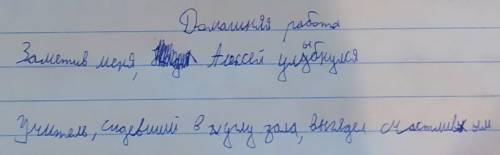 Домашняя работа
Заметив меня, Алексей улыбнулся
Учитель, сидевший в углу зала, выглядел счастливым